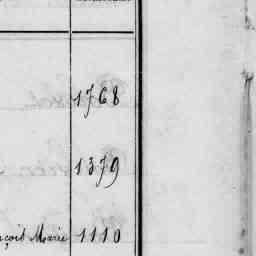 1768
1379
nçois Marie 1110